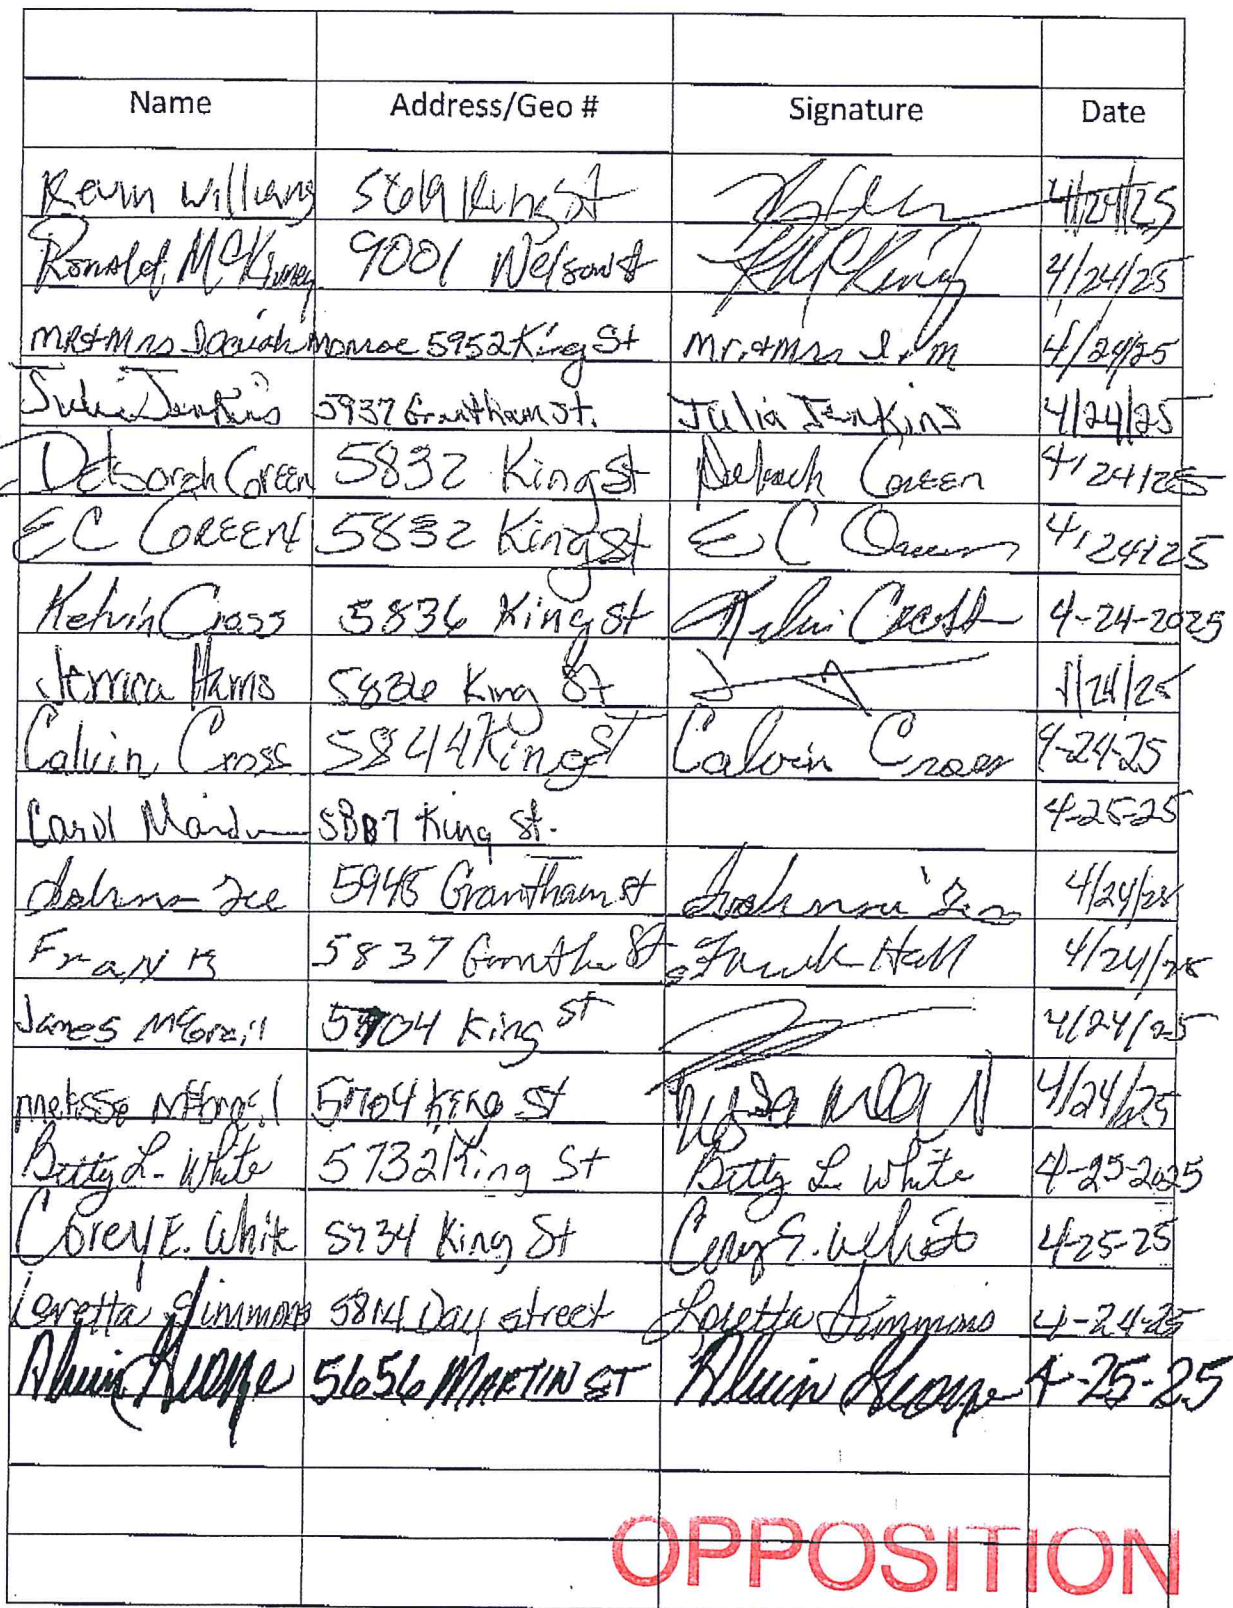 Name Address/Geo # Signature Date
Kevin Williams 5619 King St 4/24/25
Ronald McKinney 9001 Nelson St R McKiny 4/24/25
MR & Mrs Isaiah Monroe 5952 King St Mr. & Mrs I. M 4/24/25
Julia Jenkins 5937 Grantham St. Julia Jenkins 4/24/25
Deborah Green 5832 King St Deborah Green 4/24/25
EC Green 5832 King St EC Green 4/24/25
Kelvin Cross 5836 King St Kelvin Cross 4-24-2025
Jerrica Harris 5826 King St 4/24/25
Calvin Cross 5844 King St Calvin Cross 4-24-25
Carol 5807 King St. 4-25-25
5945 Grantham St 4/24/25
Frank 5837 St Frank Hall 4/24/25
James McGrail 5704 King St 4/24/25
Melissa 5704 King St 4/24/25
Betty L. White 5732 King St Betty L. White 4-25-2025
Corey E. White 5734 King St Corey E. White 4-25-25
Loretta Simmons 5814 Day street Loretta Simmons 4-24-25
Alvin George 5656 MARTIN ST Alvin George 4-25-25
OPPOSITION